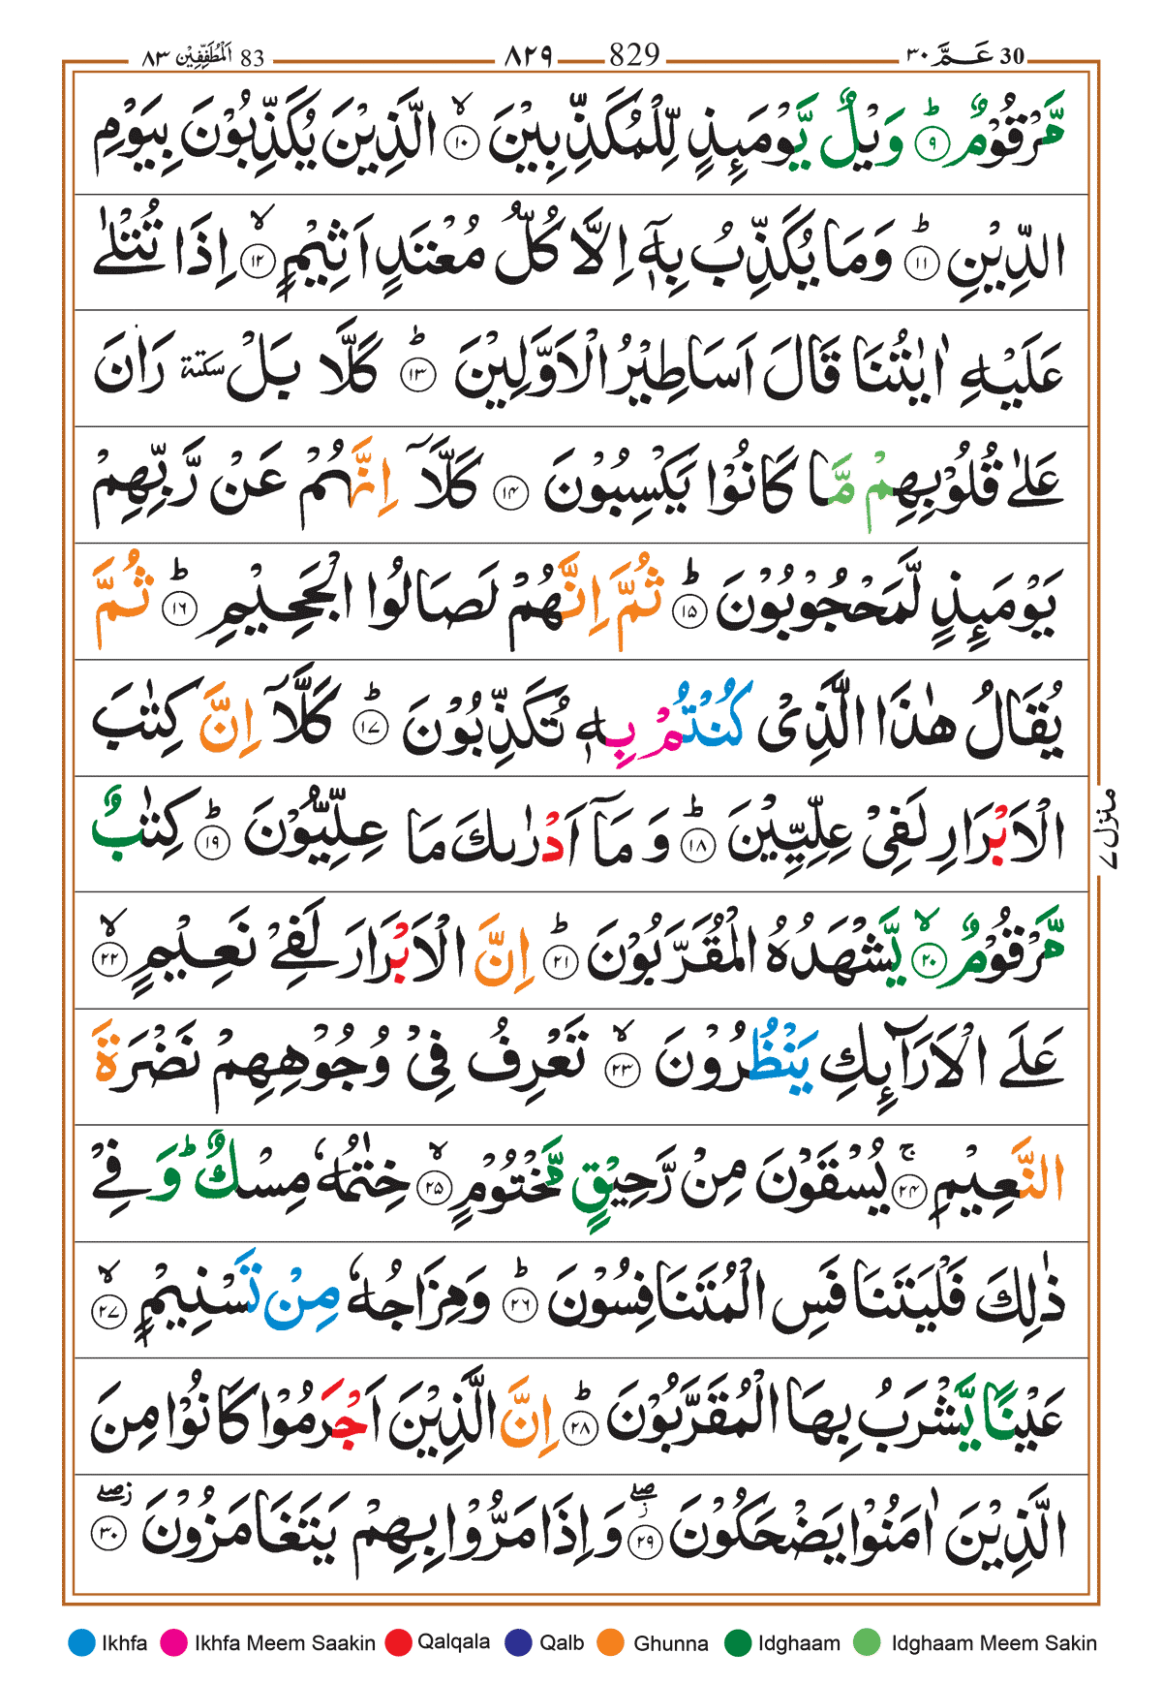 30 عَـمَّ ٣٠ 829 ٨٢٩ 83 اَلْمُطَفِّفِيْن ٨٣
مَّرْقُوْمٌ ؕ﴿۹﴾ وَيْلٌ يَّوْمَىِٕذٍ لِّلْمُكَذِّبِيْنَ ۙ﴿۱۰﴾ الَّذِيْنَ يُكَذِّبُوْنَ بِيَوْمِ
الدِّيْنِ ؕ﴿۱۱﴾ وَمَا يُكَذِّبُ بِهٖۤ اِلَّا كُلُّ مُعْتَدٍ اَثِيْمٍ ۙ﴿۱۲﴾ اِذَا تُتْلٰى
عَلَيْهِ اٰيٰتُنَا قَالَ اَسَاطِيْرُ الْاَوَّلِيْنَ ؕ﴿۱۳﴾ كَلَّا بَلْ سكتة رَانَ
عَلٰى قُلُوْبِهِمْ مَّا كَانُوْا يَكْسِبُوْنَ ﴿۱۴﴾ كَلَّاۤ اِنَّهُمْ عَنْ رَّبِّهِمْ
يَوْمَىِٕذٍ لَّمَحْجُوْبُوْنَ ؕ﴿۱۵﴾ ثُمَّ اِنَّهُمْ لَصَالُوا الْجَحِيْمِ ؕ﴿۱۶﴾ ثُمَّ
يُقَالُ هٰذَا الَّذِىْ كُنْتُمْ بِهٖ تُكَذِّبُوْنَ ؕ﴿۱۷﴾ كَلَّاۤ اِنَّ كِتٰبَ
الْاَبْرَارِ لَفِىْ عِلِّيِّيْنَ ؕ﴿۱۸﴾ وَمَاۤ اَدْرٰىكَ مَا عِلِّيُّوْنَ ؕ﴿۱۹﴾ كِتٰبٌ
مَّرْقُوْمٌ ۙ﴿۲۰﴾ يَّشْهَدُهُ الْمُقَرَّبُوْنَ ؕ﴿۲۱﴾ اِنَّ الْاَبْرَارَ لَفِىْ نَعِيْمٍ ۙ﴿۲۲﴾
عَلَى الْاَرَآىِٕكِ يَنْظُرُوْنَ ۙ﴿۲۳﴾ تَعْرِفُ فِىْ وُجُوْهِهِمْ نَضْرَةَ
النَّعِيْمِ ۚ﴿۲۴﴾ يُسْقَوْنَ مِنْ رَّحِيْقٍ مَّخْتُوْمٍ ۙ﴿۲۵﴾ خِتٰمُهٗ مِسْكٌ ؕ وَفِىْ
ذٰلِكَ فَلْيَتَنَافَسِ الْمُتَنَافِسُوْنَ ؕ﴿۲۶﴾ وَمِزَاجُهٗ مِنْ تَسْنِيْمٍ ۙ﴿۲۷﴾
عَيْنًا يَّشْرَبُ بِهَا الْمُقَرَّبُوْنَ ؕ﴿۲۸﴾ اِنَّ الَّذِيْنَ اَجْرَمُوْا كَانُوْا مِنَ
الَّذِيْنَ اٰمَنُوْا يَضْحَكُوْنَ ۖز﴿۲۹﴾ وَاِذَا مَرُّوْا بِهِمْ يَتَغَامَزُوْنَ ۖز﴿۳۰﴾
منزل ۷
Ikhfa Ikhfa Meem Saakin Qalqala Qalb Ghunna Idghaam Idghaam Meem Sakin